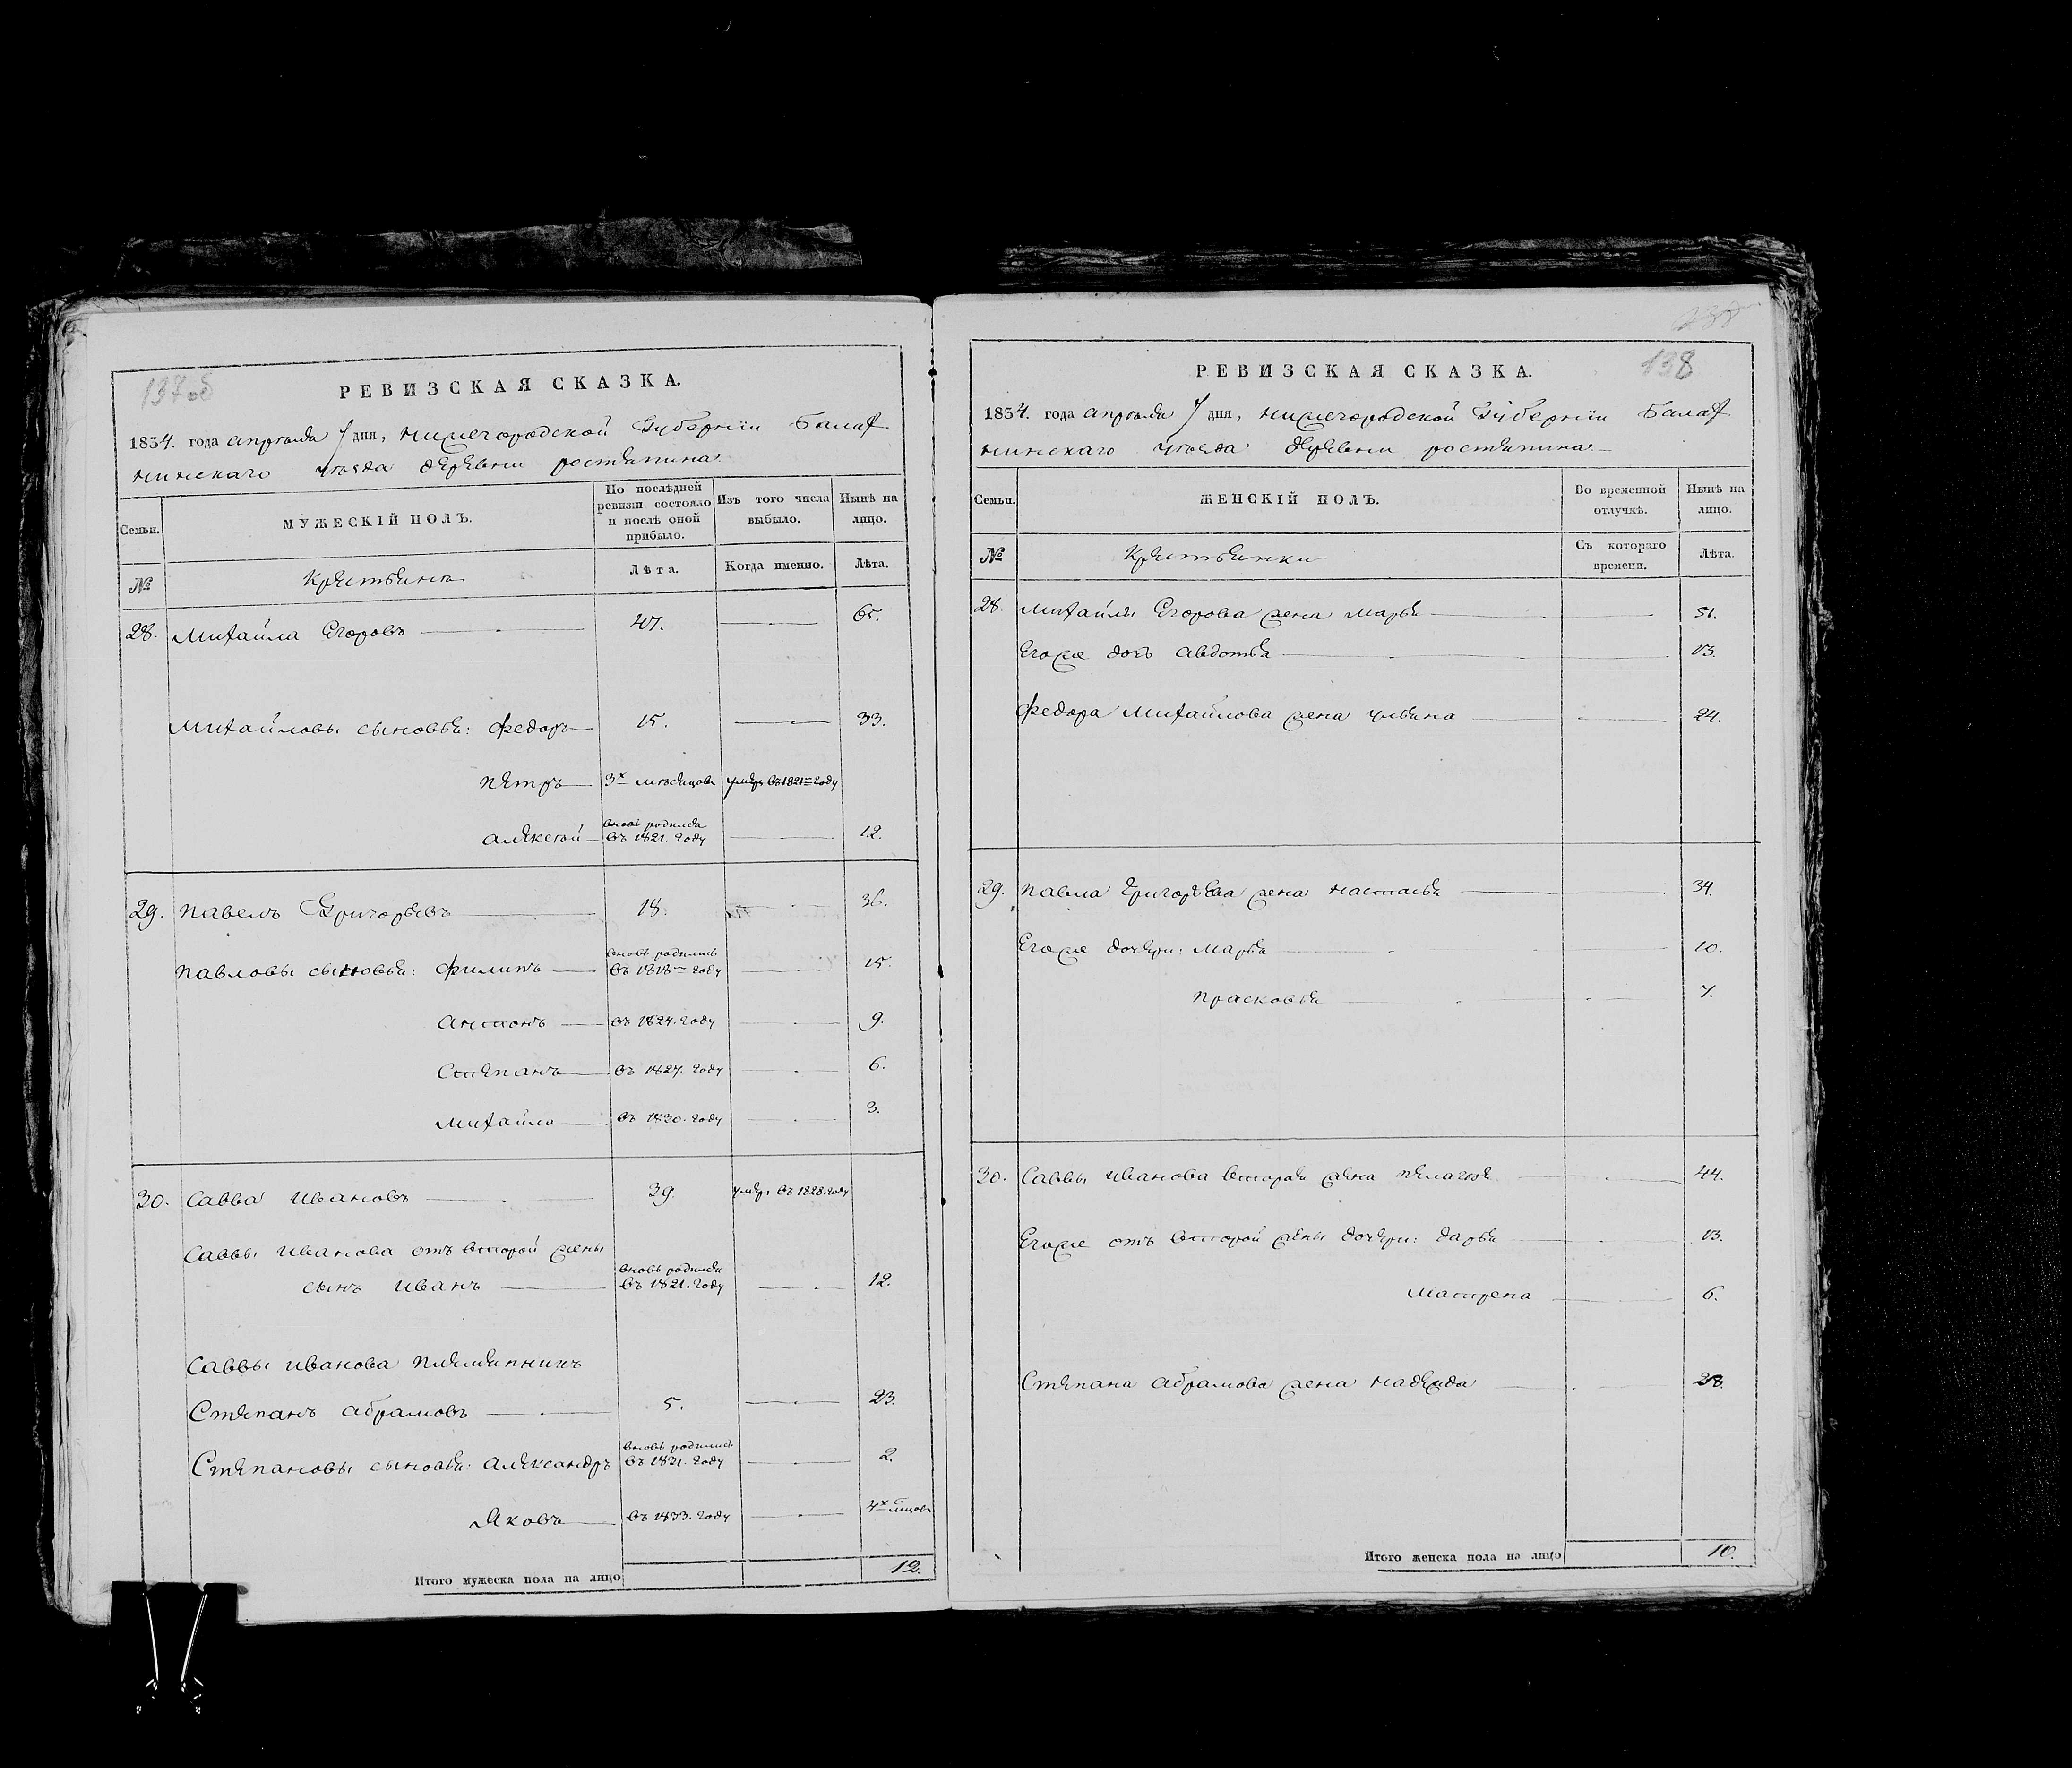 137об
РЕВИЗСКАЯ СКАЗКА.
1834. года апреля 7 дня, нижегородской Губернїи Балах
нинскаго уезда деревни ростяпина
Семьи.
МУЖЕСКІЙ ПОЛЪ.
По послѣдней ревизіи состояло и послѣ оной прибыло.
Изъ того числа выбыло.
Нынѣ на лицо.
№
Крестьянъ
Лѣта.
Когда именно.
Лѣта.
28. михайла Егоровъ 47. 65.
михайловы сыновья: федоръ 15. 33.
петръ 3х месяцовъ умеръ въ 1821м году
алексей вновь родился въ 1821. году 12.
29. павелъ Григорьевъ 18. 36.
павловы сыновья: филипъ вновь родились въ 1818м году 15.
антонъ въ 1824. году 9.
степанъ въ 1827. году 6.
михайла въ 1830. году 3.
30. Савва ивановъ 39. умеръ въ 1828. году
Саввы иванова отъ второй жены
сынъ иванъ вновь родился въ 1821. году 12.
Саввы иванова племянникъ
Степанъ абрамовъ 5. 23.
Степановы сыновья: александръ вновь родились въ 1831. году 2.
яковъ въ 1833. году 4х мцовъ
Итого мужеска пола на лицо 12.
138
РЕВИЗСКАЯ СКАЗКА.
1834. года апреля 7 дня, нижегородской Губернїи Балах
нинскаго уезда деревни ростяпина
Семьи.
ЖЕНСКІЙ ПОЛЪ.
Во временной отлучкѣ.
Нынѣ на лицо.
№
Крестьянки
Съ котораго времени.
Лѣта.
28. михайлы Егорова жена марья 51.
Егоже дочь авдотья 13.
федора михайлова жена ульяна 24.
29. павла григорьева жена настасья 34.
Егоже дочери: марья 10.
прасковья 7.
30. Саввы иванова вторая жена пелагея 44.
Егоже отъ второй жены дочери: дарья 13.
матрена 6.
Степана абрамова жена надежда 23.
Итого женска пола на лицо 10.